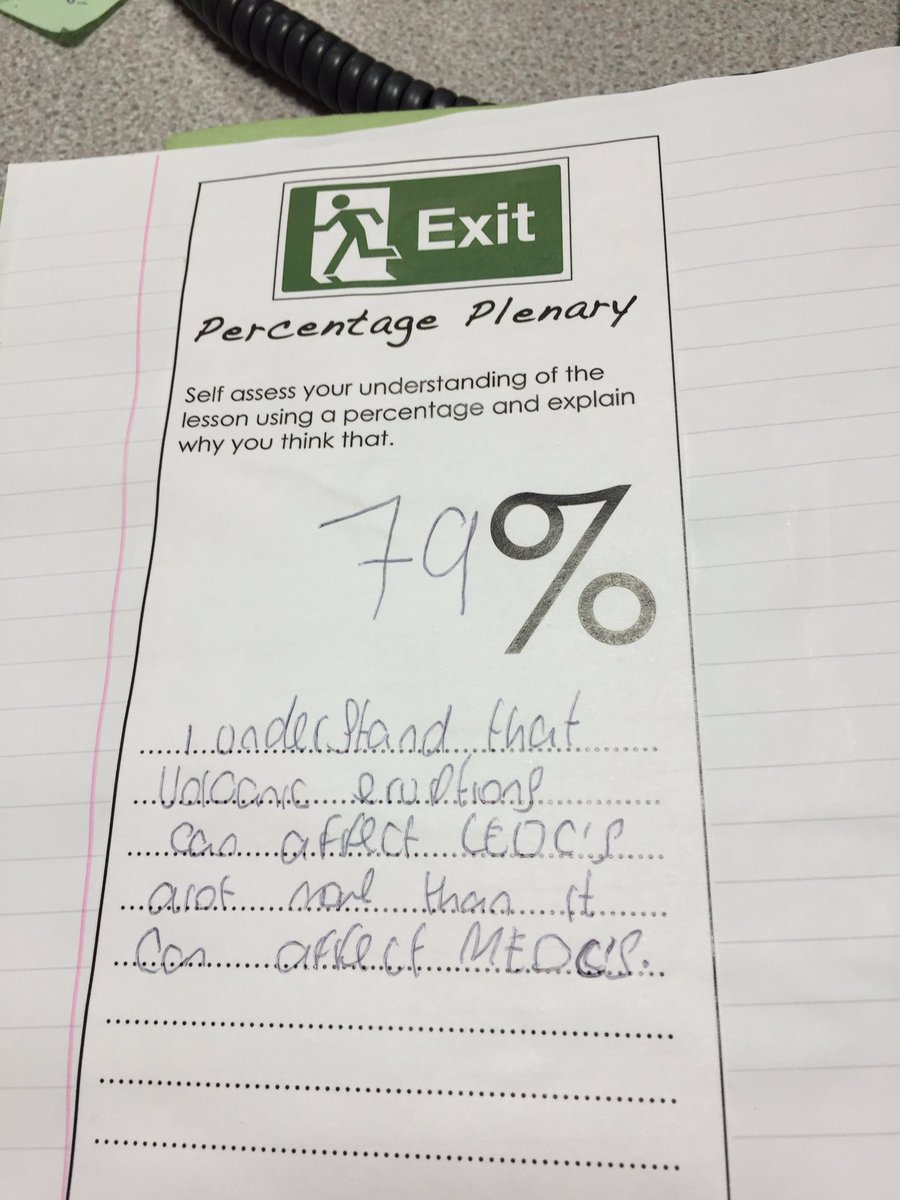 Exit
Percentage Plenary
Self assess your understanding of the
lesson using a percentage and explain
why you think that.
79%
I understand that
Volcanic eruptions
can affect LEDC's
alot more than it
Can affect MEDC's.